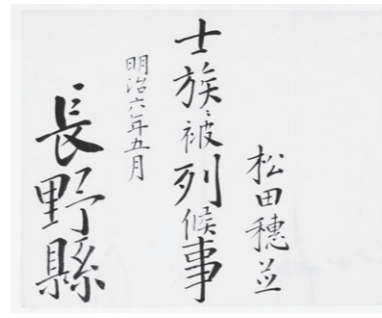 松田穗並
士族ニ被列候事
明治六年五月
長野縣